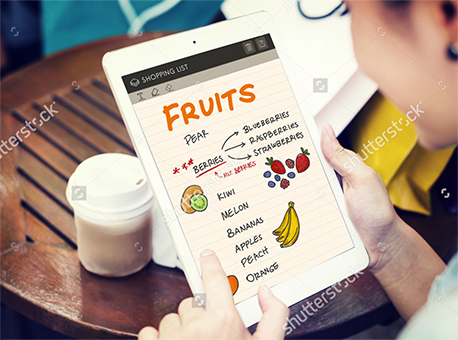 SHOPPING LIST
FRUITS
PEAR
BLUEBERRIES
RASPBERRIES
BERRIES
STRAWBERRIES
KIWI
MELON
BANANAS
APPLES
PEACH
ORANGE
shutterstock
shutterstock
shutterstock
shutterstock